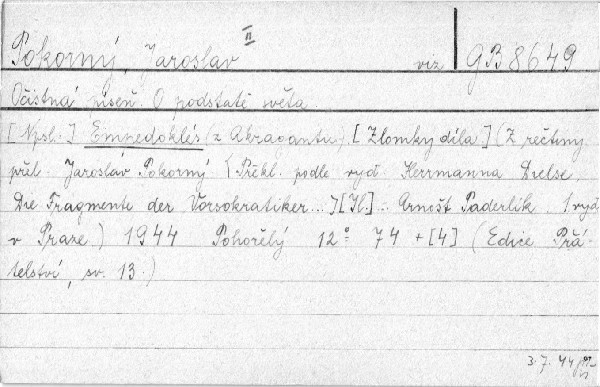 Pokorný, Jaroslav II viz GB 8649
Očistná píseň. O podstatě světa
[Npsl.] Empedoklés (z Akragantu). [Zlomky díla] (Z řečtiny
přel. Jaroslav Pokorný {Překl. podle vyd. Herrmanna Dielse,
Die Fragmente der Vorsokratiker...}[Il.] : Arnošt Paderlík. 1 vyd
v Praze.) 1944 Pohořelý 12° 74 + [4] (Edice Přá-
telství, sv. 13.)
3.7.44